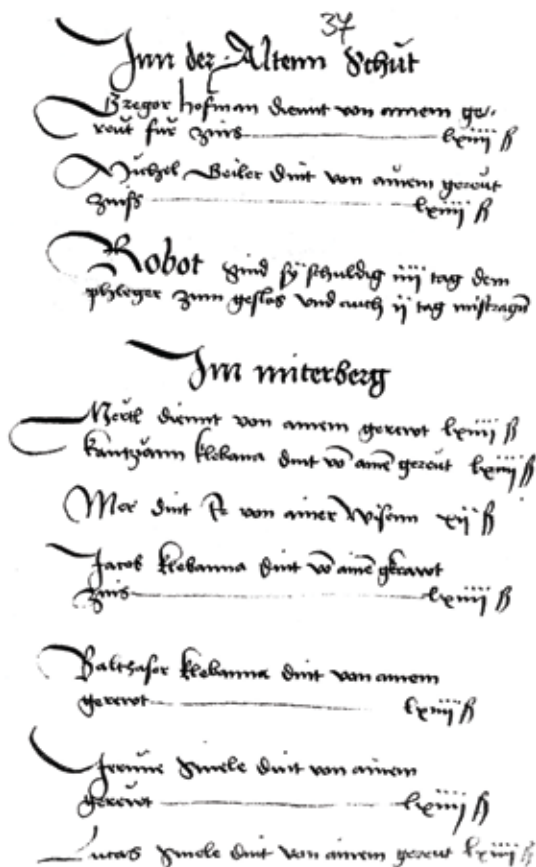 37
Inn der Altenn Schut
Gregor hofman diennt von ainem ge-
reut für zins lxiiii ß
Michel Beiler dint von ainem gereut
zinss lxiiii ß
Robot sind sy schuldig iiii tag dem
phleger zum geslos und auch ii tag mistragn
Im miterberg
Mertl diennt von ainem gerewt lxiiii ß
klebana dint vo aine gereut lxiiii ß
Mer dint von ainer Wisenn xii ß
Jacob klebanna dint vo aine
zins lxiiii ß
Balthasar klebanna dint von ainem
gerewt lxiiii ß
dint von ainem
gerewt lxiiii ß
Lucas dint von ainem gereut lxiiii ß